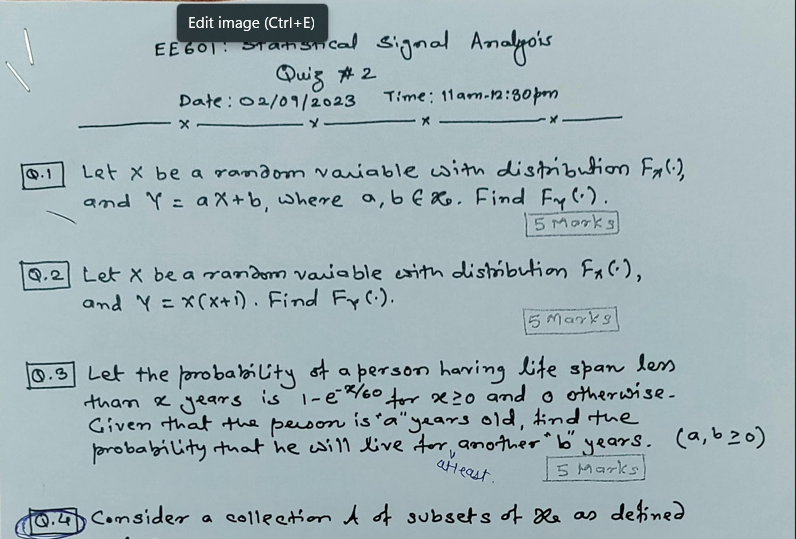 Edit image (Ctrl+E)
EE601: Statistical Signal Analysis
Quiz #2
Date: 02/09/2023 Time: 11am-12:30pm
Q.1 Let X be a random variable with distribution Fx(.),
and Y = aX+b, where a, b ∈ ℝ. Find FY(.).
5 Marks
Q.2 Let X be a random variable with distribution Fx(.),
and Y = X(X+1). Find FY(.).
5 Marks
Q.3 Let the probability of a person having life span less
than x years is 1-e^-x/60 for x≥0 and 0 otherwise.
Given that the person is "a" years old, find the
probability that he will live for atleast another "b" years. (a, b ≥ 0)
5 Marks
Q.4 Consider a collection A of subsets of ℝ as defined